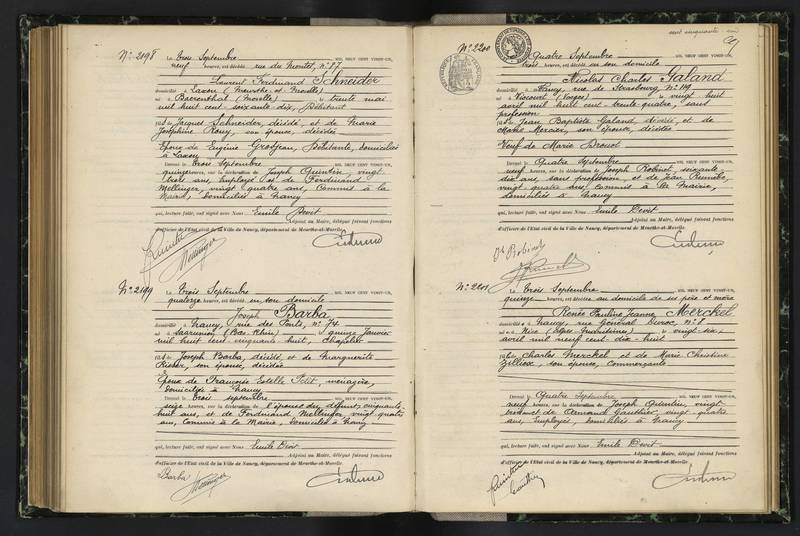 N° 2198
Le trois Septembre MIL NEUF CENT VINGT-UN,
neuf heures, est décédé rue du Montet, n° 87
Laurent Ferdinand Schneider
domicilié à Laxou (Meurthe-et-Moselle)
né à Baerenthal (Moselle) le trente mai
mil huit cent soixante dix, Débitant
fils de Jacques Schneider, décédé, et de Marie
Joséphine Roux, son épouse, décédée
Epoux de Eugénie Grosjean, Débitante, domiciliée
à Laxou
Dressé le trois Septembre MIL NEUF CENT VINGT-UN,
quinze heures, sur la déclaration de Joseph Quintin, vingt
trois ans, Employé et de Ferdinand
Mellinger, vingt quatre ans, Commis à la
Mairie, domiciliés à Nancy
qui, lecture faite, ont signé avec Nous Emile Devit
Adjoint au Maire, délégué faisant fonctions
d'officier de l'Etat civil de la Ville de Nancy, département de Meurthe-et-Moselle.
Quintin
Mellinger
N° 2199
Le trois Septembre MIL NEUF CENT VINGT-UN,
quatorze heures, est décédé en son domicile
Joseph Barba
domicilié à Nancy, rue des Ponts, n° 74
né à Saarunion (Bas-Rhin) le quinze Janvier
mil huit cent cinquante huit, chapelier
fils de Joseph Barba, décédé et de Marguerite
son épouse, décédée
Epoux de Françoise Estelle Petit, ménagère,
domiciliée à Nancy
Dressé le trois septembre MIL NEUF CENT VINGT-UN,
seize heures, sur la déclaration de l'épouse du défunt, cinquante
huit ans, et de Ferdinand Mellinger, vingt-quatre
ans, Commis à la Mairie, domiciliés à Nancy
qui, lecture faite, ont signé avec Nous Emile Devit
Adjoint au Maire, délégué faisant fonctions
d'officier de l'Etat civil de la Ville de Nancy, département de Meurthe-et-Moselle.
Barba Mellinger
cent cinquante un
N° 2200
Le Quatre Septembre MIL NEUF CENT VINGT-UN,
trois heures, est décédé en son domicile
Nicolas Charles Galand
domicilié à Nancy, rue de Strasbourg, n° 119
né à (Vosges) le vingt huit
avril mil huit cent trente-quatre, sans
profession
fils de Jean Baptiste Galand, décédé, et de
Marie Mercier, son épouse, décédée
Veuf de Marie Drouot
Dressé le Quatre Septembre MIL NEUF CENT VINGT-UN,
neuf heures, sur la déclaration de Joseph Robinet, soixante
dix ans, sans profession, et de Jean
vingt quatre ans, commis à la Mairie,
domiciliés à Nancy
qui, lecture faite, ont signé avec Nous Emile Devit
Adjoint au Maire, délégué faisant fonctions
d'officier de l'Etat civil de la Ville de Nancy, département de Meurthe-et-Moselle.
Robinet
N° 2201
Le trois Septembre MIL NEUF CENT VINGT-UN,
quinze heures, est décédée au domicile de ses père et mère
Renée Pauline Jeanne Merckel
domiciliée à Nancy, rue Général Duroc, n° 8
née à Nice (Alpes-Maritimes) le vingt-six
avril mil neuf cent dix-huit
fille de Charles Merckel et de Marie Christine
Zilliox, son épouse, Commerçants
Dressé le Quatre Septembre MIL NEUF CENT VINGT-UN,
neuf heures, sur la déclaration de Joseph Quintin, vingt
trois ans et de Armand Gauthier, vingt-quatre
ans, Employés, domiciliés à Nancy
qui, lecture faite, ont signé avec Nous Emile Devit
Adjoint au Maire, délégué faisant fonctions
d'officier de l'Etat civil de la Ville de Nancy, département de Meurthe-et-Moselle.
Quintin
Gauthier